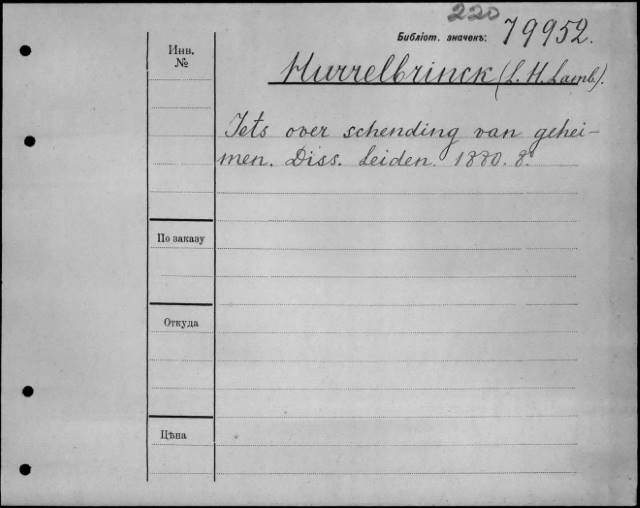 220
Библіот. значекъ: 79952.
Инв. №
Hurrelbrinck (L. H. Lamb).
Iets over schending van gehei-
men. Diss. Leiden. 1880. 8°.
По заказу
Откуда
Цѣна